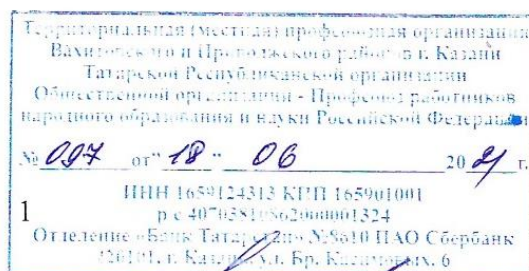 Территориальная (местная) профсоюзная организация
Вахитовского и Приволжского районов г. Казани
Татарской Республиканской организации
Общественной организации - Профсоюз работников
народного образования и науки Российской Федерации
№ 097 от "18" 06 2021 г.
ИНН 1659124313 КПП 165901001
1
р/с
Отделение «Банк Татарстан» №8610 ПАО Сбербанк
г. Казань, ул. Бр. Касимовых, 6